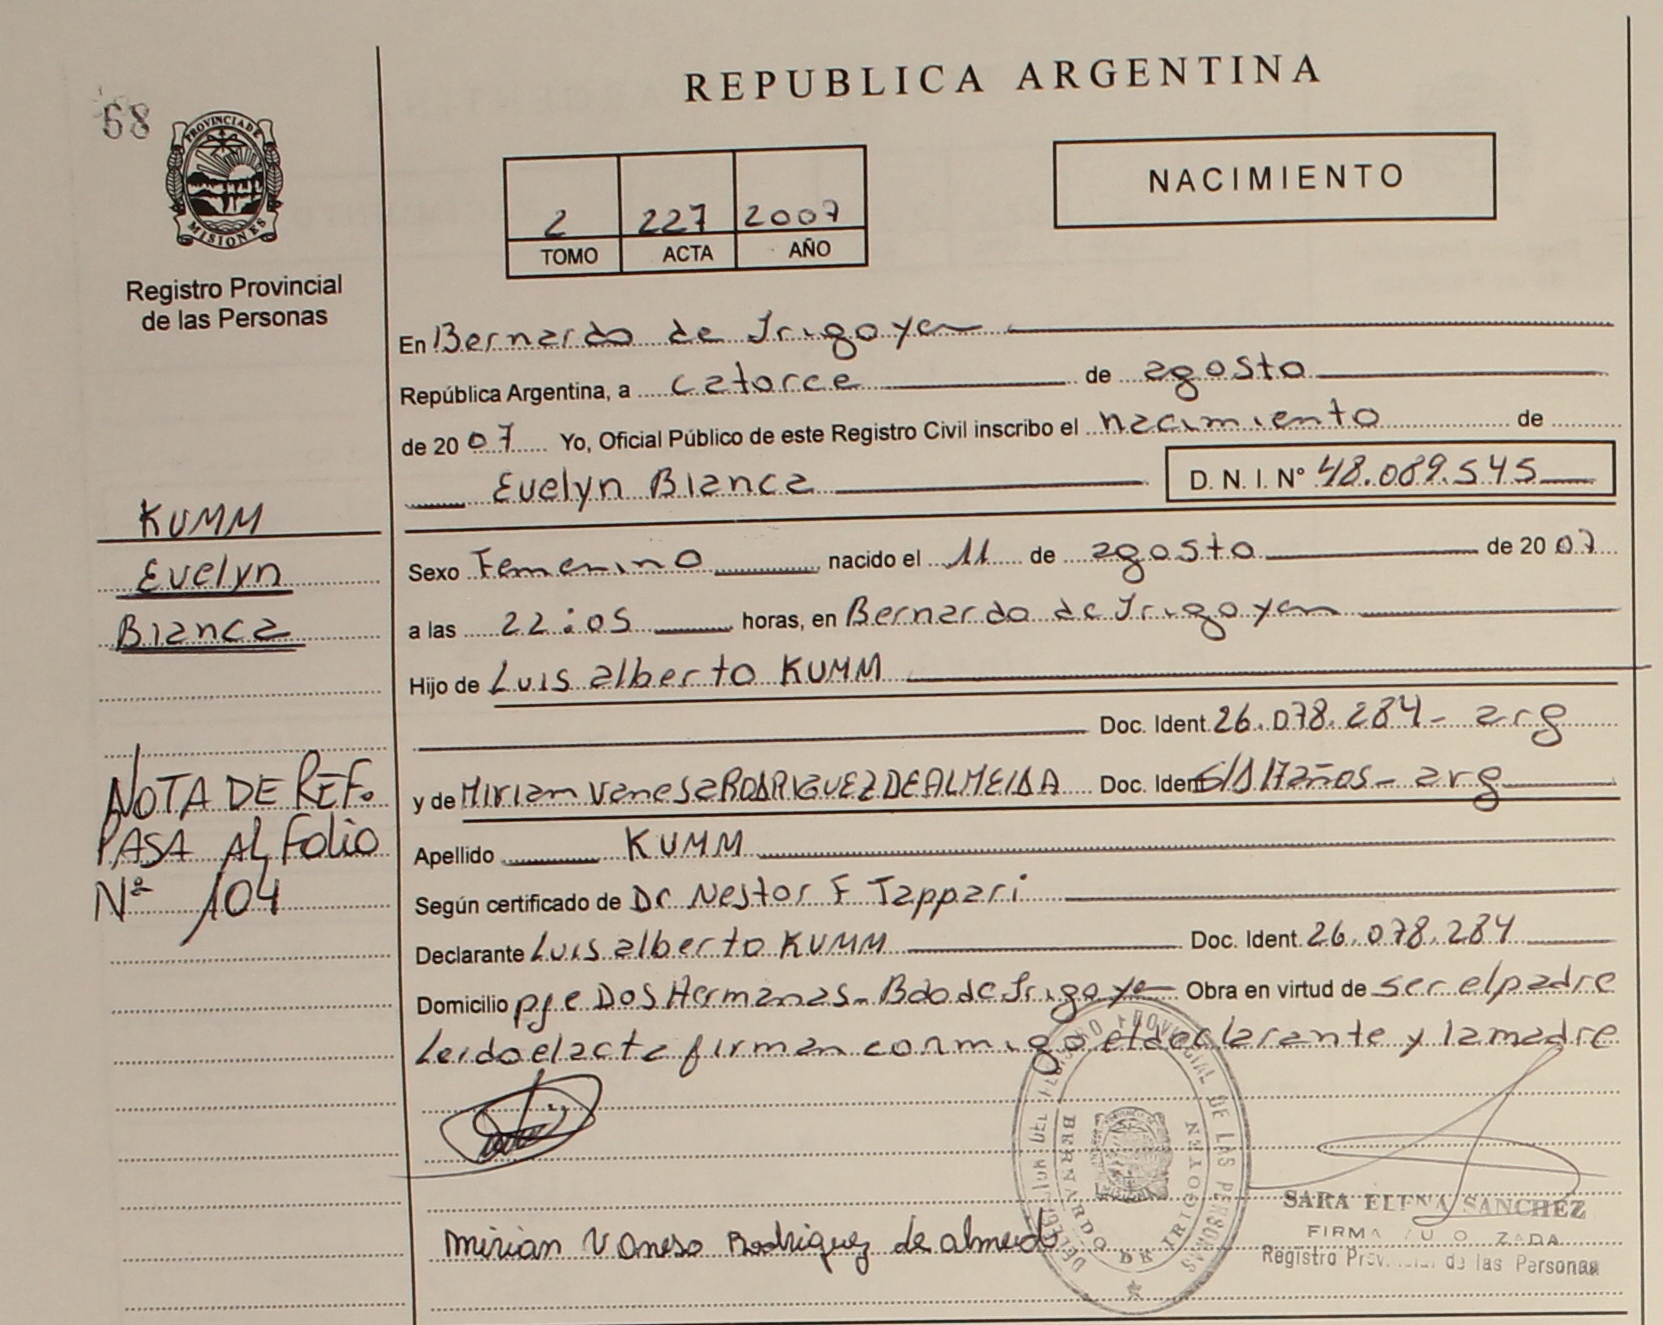 REPUBLICA ARGENTINA
68
PROVINCIA DE
MISIONES
Registro Provincial
de las Personas
2 227 2007
TOMO ACTA AÑO
NACIMIENTO
En Bernardo de Irigoyen
República Argentina, a catorce de agosto
de 2007 Yo, Oficial Público de este Registro Civil inscribo el nacimiento de
Evelyn Bianca D. N. I. Nº 48.089.545
KUMM
Evelyn
Bianca
Sexo Femenino nacido el 11 de agosto de 2007
a las 22:05 horas, en Bernardo de Irigoyen
Hijo de Luis alberto KUMM
Doc. Ident. 26.078.284- arg
y de Mirian Vanesa RODRIGUEZ DE ALMEIDA Doc. Ident S/D 17 años- arg
Apellido KUMM
Según certificado de Dr Nestor F Tappari
Declarante Luis alberto KUMM Doc. Ident. 26.078.284
Domicilio pje Dos Hermanas- Bdo de Irigoyen Obra en virtud de ser el padre
Leido el acta firman conmigo el declarante y la madre
NOTA DE REF.
PASA AL FOLIO
Nº 104
Mirian Vanesa Rodriguez de almeida
DELEGACION DEL REGISTRO PROVINCIAL DE LAS PERSONAS
BERNARDO DE IRIGOYEN
SARA ELENA SANCHEZ
FIRMA AUTORIZADA
Registro Provincial de las Personas